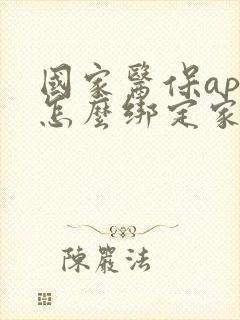 國家醫保ap
怎麼綁定家
陳嚴法